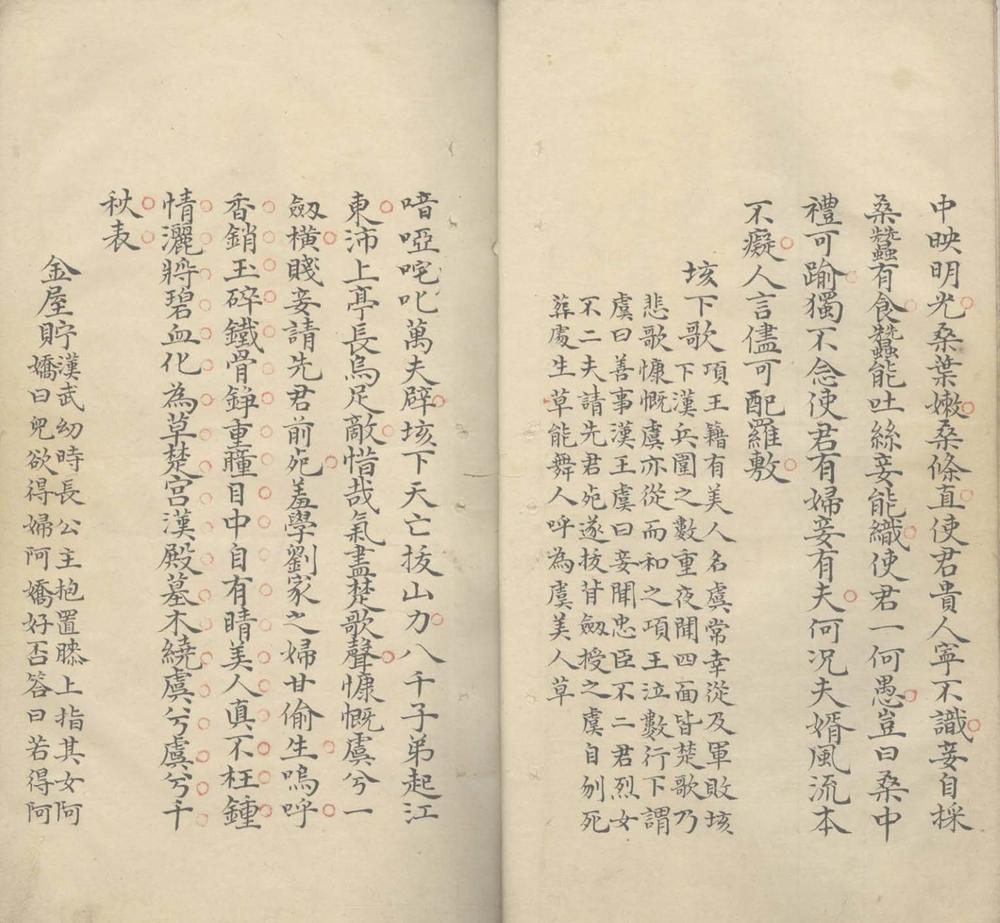 中映明光桑葉嫩桑條直使君貴人寧不識妾自採
桑蠶有食蠶能吐絲妾能織使君一何愚豈曰桑中
禮可踰獨不念使君有婦妾有夫何況夫婿風流本
不癡人言儘可配羅敷
垓下歌
項王籍有美人名虞常幸從及軍敗垓
下漢兵圍之數重夜聞四面皆楚歌乃
悲歌慷慨虞亦從而和之項王泣數行下謂
虞曰善事漢王虞曰妾聞忠臣不二君烈女
不二夫請先君死遂拔背劔授之虞自刎死
葬處生草能舞人呼為虞美人草
喑啞咤叱萬夫辟垓下天亡拔山力八千子弟起江
東沛上亭長烏足敵惜哉氣盡楚歌聲慷慨虞兮一
劔橫賤妾請先君前死羞學劉家之婦甘偷生嗚呼
香銷玉碎鐵骨錚重瞳目中自有晴美人真不枉鍾
情灑將碧血化為草楚宮漢殿墓木繞虞兮虞兮千
秋表
金屋貯
漢武幼時長公主抱置膝上指其女阿
嬌曰兒欲得婦阿嬌好否答曰若得阿